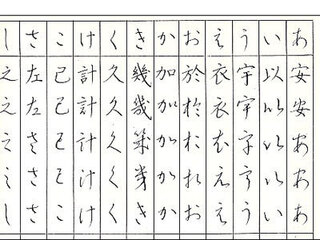 あ安安あああ
い以以以いい
う宇宇宇うう
え衣衣衣ええ
お於於おおお
か加加かかか
き幾幾幾幾き
く久久久くく
け計計計けけ
こ己己己ここ
さ左左さささ
し之之之之し